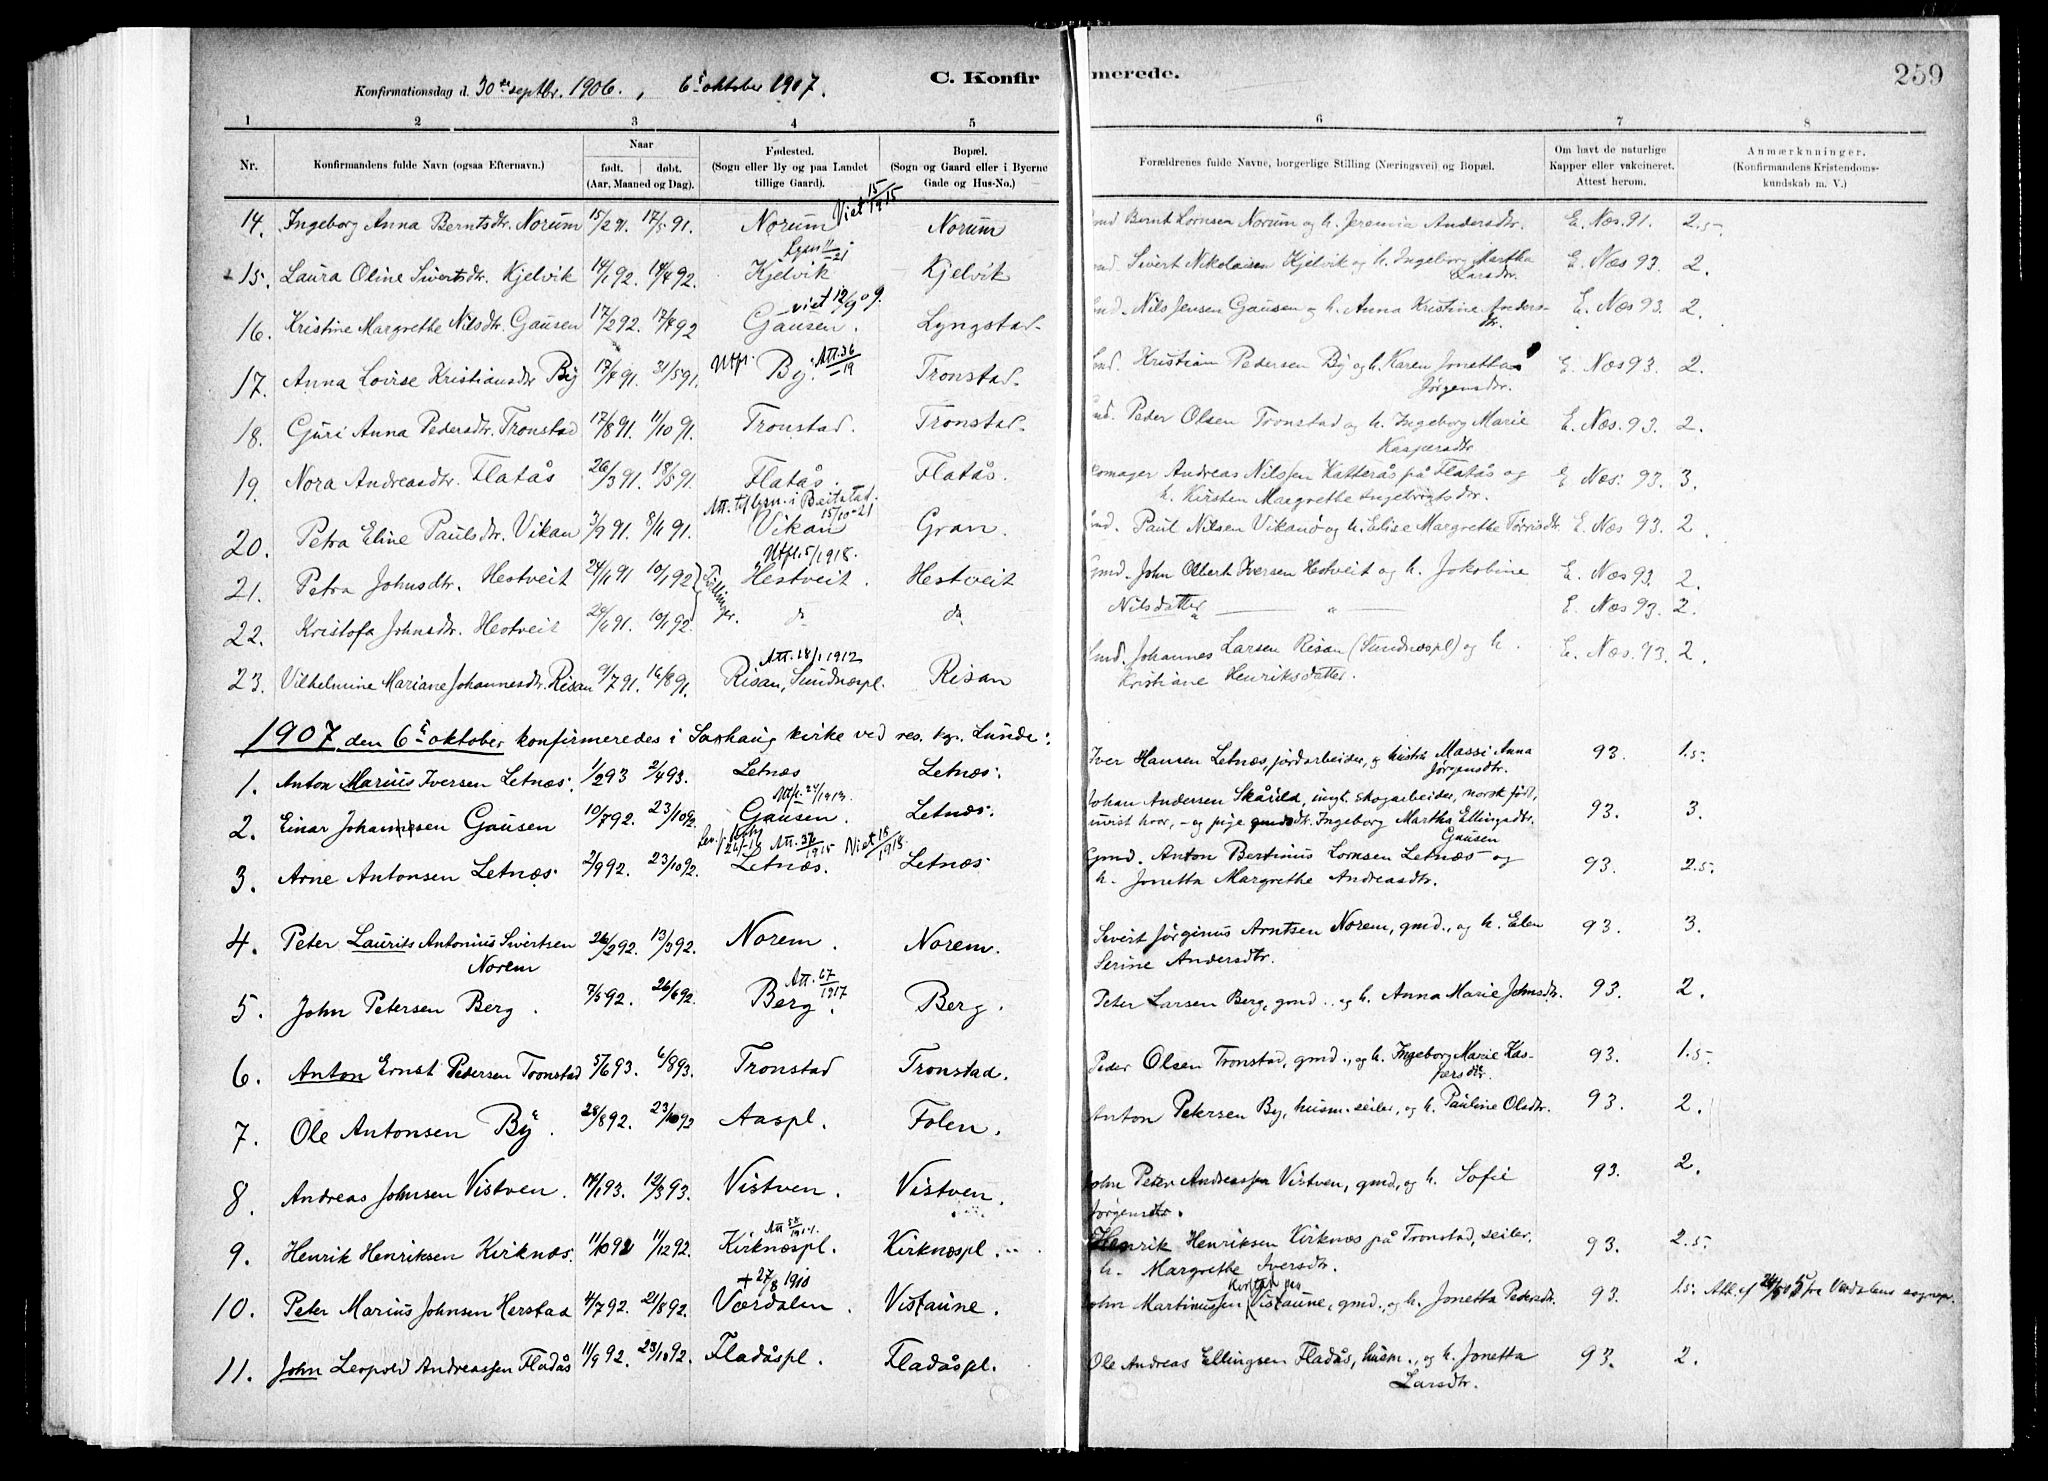 Konfirmationsdag d. 30te septbr. 1906, 6. oktober 1907. C. Konfir merede. 259
1 2 3 4 5 6 7 8
Nr. Konfirmandens fulde Navn (ogsaa Efternavn.) Naar født. døbt. (Aar, Maaned og Dag). Fødested. (Sogn eller By og paa Landet tillige Gaard). Bopæl. (Sogn og Gaard eller i Byerne Gade og Hus-No.) Forældrenes fulde Navne, borgerlige Stilling (Næringsvei) og Bopæl. Om havt de naturlige Kapper eller vakcineret. Attest herom. Anmærkninger. (Konfirmandens Kristendomskundskab m. V.)
Viet 15/1915
14. Ingeborg Anna Berntsdtr. Norum 15/2 91. 17/5 91. Norum Norum Bernt Lornsen Norum og h. Jeremia Andersdtr. E. Næs. 91. 2.5
15. Laura Oline Sivertsdtr. Kjelvik 14/1 92. 18/4 92. Kjelvik Kjelvik Sivert Nikolaisen Kjelvik og h. Ingeborg Martha Larsdtr. E. Næs 93. 2.
viet 12/9 09.
16. Kristine Margrethe Nilsdtr. Gausen 17/2 92. 17/4 92 Gausen. Lyngstad. Nils Jensen Gausen og h. Anna Kristine Andersdtr. E. Næs 93. 2.
Utfl. Att. 36/-19
17. Anna Lovise Kristiansdtr By 17/4 91. 31/5 91. By. Tronstad. Kristian Pedersen By og h. Karen Jonetta Jørgensdtr. E. Næs 93. 2.
18. Guri Anna Pedersdtr. Tronstad 17/8 91. 11/10 91. Tronstad. Tronstad. Peder Olsen Tronstad og h. Ingeborg Marie Kaspersdtr E. Næs. 93. 2.
19. Nora Andreasdtr. Flatås 26/3 91. 18/5 91. Flatås. Flatås. Andreas Nilssen Katterås på Flatås og h. Kirsten Margrethe Ingebrigtsdtr. E. Næs. 93. 3.
Att. til lysn. i Beitstad. 15/10-21
20. Petra Eline Paulsdtr. Vikan 3/9 91. 8/11 91. Vikan Gran. Paul Nilsen Vikanø og h. Elise Margrethe Tørrisdtr. E. Næs 93. 2
Utfl. 5/1918.
21. Petra Johnsdtr. Hestveit 24/11 91 10/1 92 Tvillinger. Hestveit. Hestveit Gmd. John Olbert Iversen Hestveit og h. Jokobine Nilsdatter E. Næs 93. 2.
22. Kristofa Johnsdtr. Hestveit 24/11 91. 10/1 92. do do " E. Næs 93. 2.
Att. 18/1 1912
23. Vilhelmine Mariane Johannesdtr. Risan 9/7 91. 16/8 91. Risan, Sundnæspl. Risan Johannes Larsen Risan (Sundnæspl) og h. Kristiane Henriksdatter. E. Næs. 93. 2.
1907 den 6. oktober konfirmeredes i Saxhaug kirke ved res. kap. Lunde:
1. Anton Marius Iversen Letnæs. 1/2 93 2/4 93. Letnæs Letnæs. Iver Hansen Letnæs, jordarbeider, og hustru Massi Anna Jørgensdtr. 93. 1.5
2. Einar Johannesen Gausen 10/7 92. 23/10 92. Gausen. Letnæs. Johan Andersen Skårild, ungk. skogarbeider, norsk født, uvist hvor, - og pige gmdsdtr. Ingeborg Martha Ellingsdtr. Gausen 93. 3.
Att. 37/1915 Viet 18/1918.
3. Arne Antonsen Letnæs. 2/9 92. 23/10 92. Letnæs. Letnæs. Gmd. Anton Bertinus Lornsen Letnæs og h. Jonetta Margrethe Andreasdtr. 93. 2.5.
4. Peter Laurits Antonius Sivertsen Norem 26/2 92. 13/3 92. Norem. Norem. Sivert Jørginus Arntsen Norem, gmd., og h. Elen Serine Andersdtr. 93. 3.
Att. 67/1917
5. John Petersen Berg. 7/5 92. 26/6 92. Berg. Berg. Peter Larsen Berg, gmd., og h. Anna Marie Johnsdtr. 93. 2.
6. Anton Ernst Pedersen Tronstad 5/6 93. 6/8 93. Tronstad Tronstad. Peder Olsen Tronstad, gmd., og h. Ingeborg Marie Kaspersdtr. 93. 1.5
7. Ole Antonsen By. 28/8 92. 23/10 92 Aaspl. Folen. Anton Petersen By, husm. seiler, og h. Pauline Olsdtr. 93. 2.
8. Andreas Johnsen Vistven. 14/1 93. 12/3 93. Vistven. Vistven. John Peter Andreassen Vistven, gmd, og h. Sofie Jørgensdtr. 93. 2.
9. Henrik Henriksen Kirknæs. 11/10 92 11/12 92. Kirknæspl. Kirknæspl. Henrik Henriksen Kirknæs på Tronstad, seiler, h. Margrethe Iversdtr. 93. 2.5.
+ 27/8 1910
10. Peter Marius Johnsen Herstad 4/7 92. 21/8 92. Værdalen. Vistaune. John Martinussen Vistaune, gmd., og h. Jonetta Pedersdtr. 93. 1.5. Att. af 24/5 05 fra Værdalens sognepr.
11. John Leopold Andreassen Fladås 11/9 92. 23/10 92. Fladåspl. Fladåspl. Ole Andreas Ellingsen Fladås, husm., og h. Jonetta Larsdtr. 93. 2.